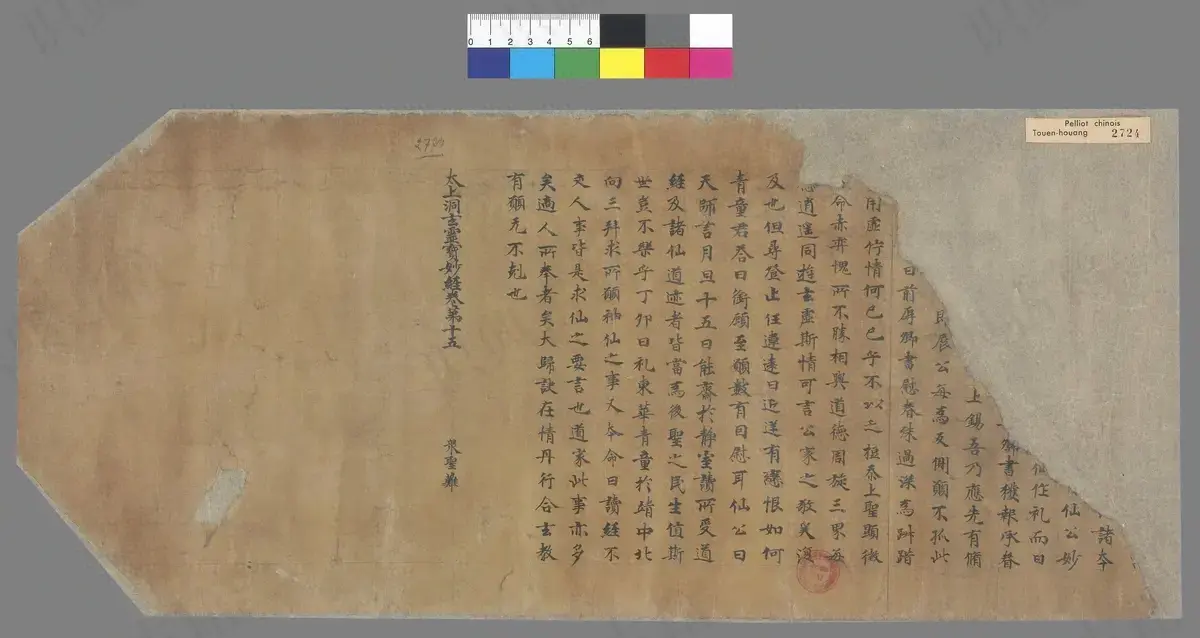 Pelliot chinois
Touen-houang 2724
0 1 2 3 4 5 6
諸夲
仙公妙
仙任礼而曰
卿書撥報承眷
上錫吾乃應先有脩
即展公每高友側願不孤此
曰前厚卿書慰眷殊過深為
用虛佇情何已已乎不以之 忝上聖顯微
命赤弈愧所不勝相與道德周旋三界每
逍遥同遊玄虛斯情可言公家之敬矣
及也但尋登上任違遠日近送有 恨如何
青童君荅曰銜願至願數有因慰耳仙公曰
天師言月旦十五日能齋於靜室讀所受道
經及諸仙道迹者皆當為後聖之民生值斯
世豈不樂乎丁卯日礼東華青童於靖中北
向三拜求所願神仙之事又夲命日讀經不
交人事皆是求仙之要言也道家此事亦多
矣適人所奉者矣大歸訣在情丹行合玄教
有願无不尅也
太上洞玄靈寶妙經卷第十五
衆聖難